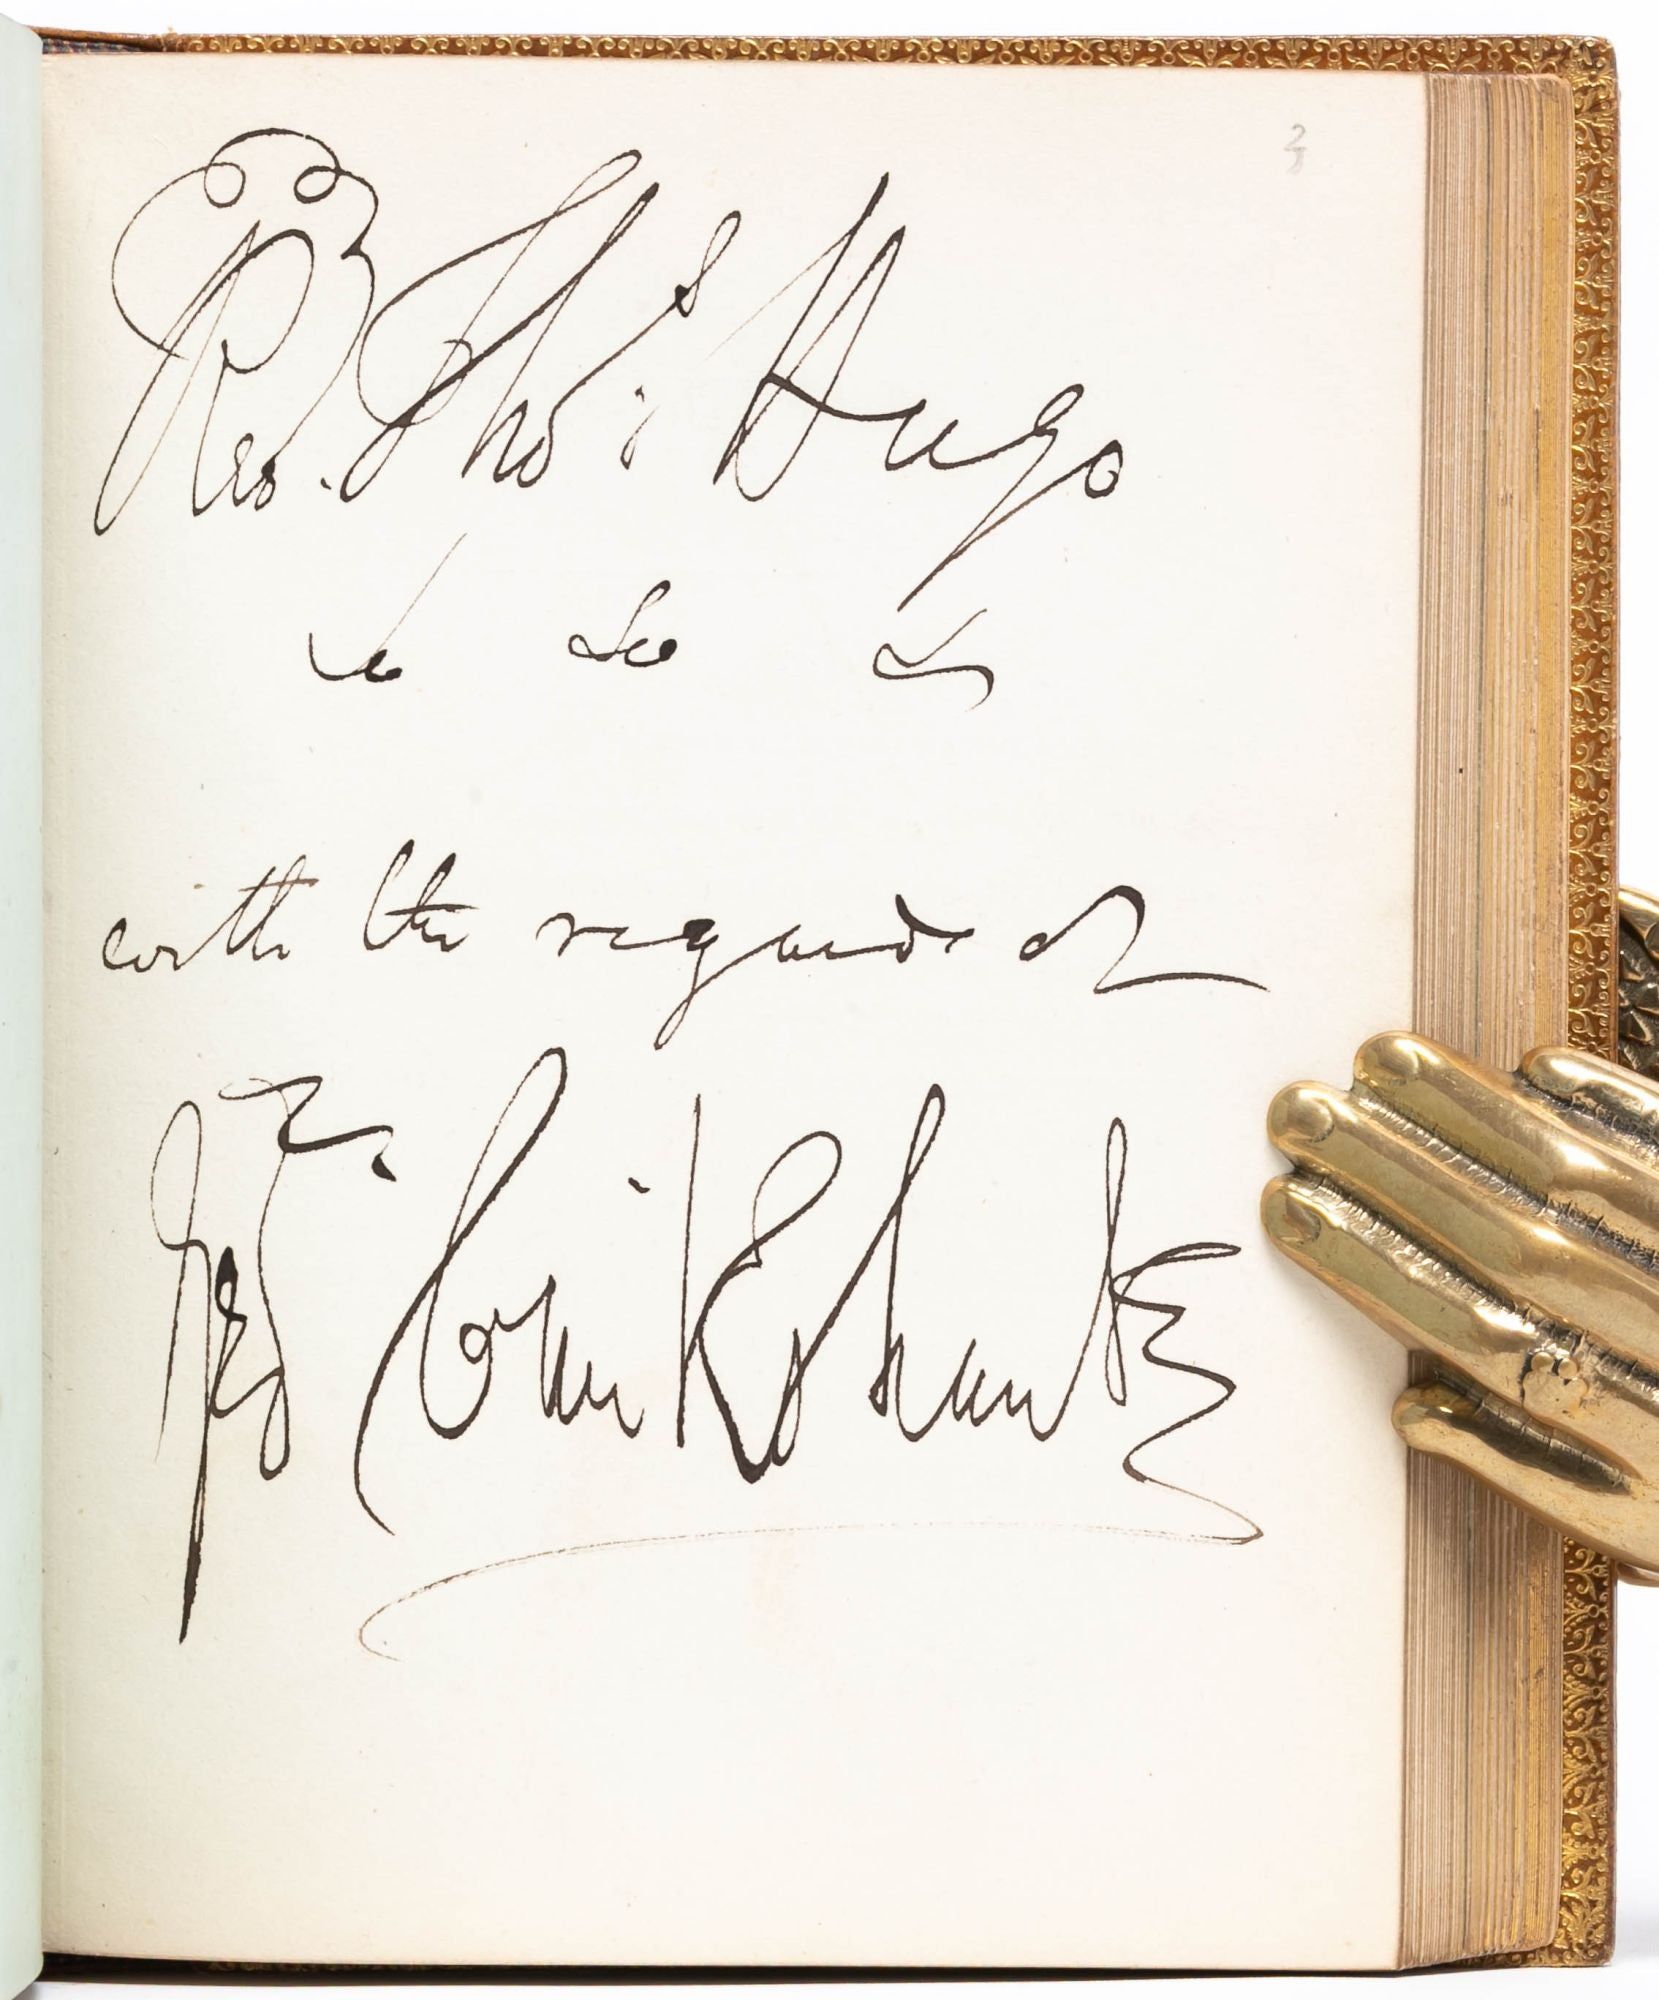 Rev. Thos Hugo
&c &c &c
with the regards of
Geo. Cruikshank